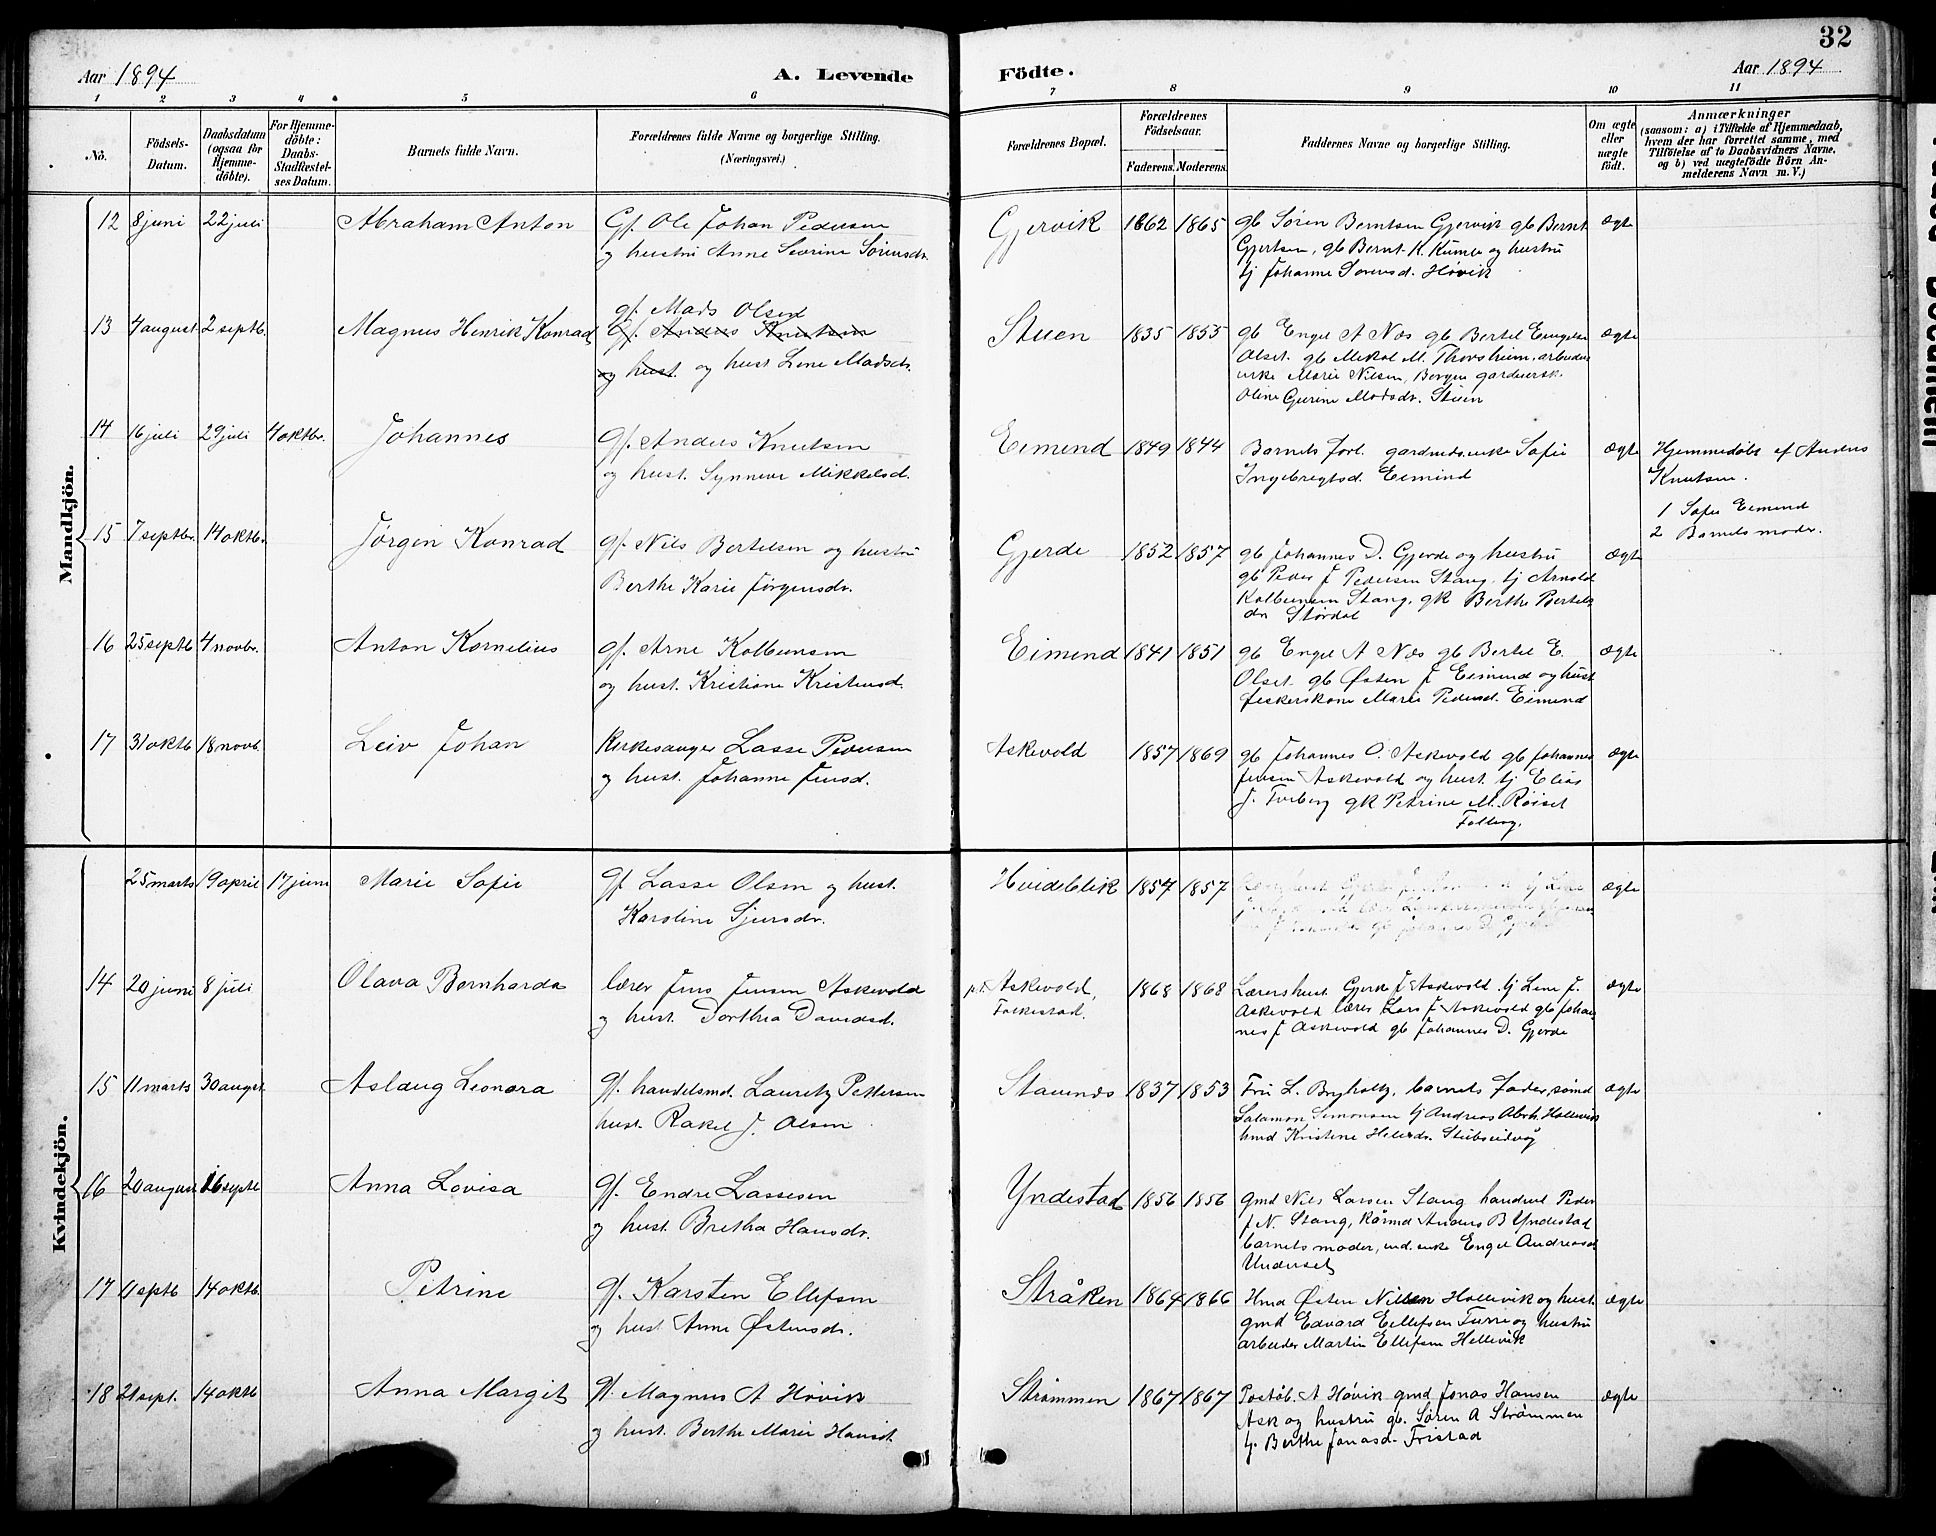 32
Aar 1894
A. Levende Födte.
Aar 1894
1 2 3 4 5 6 7 8 9 10 11
No.
Födsels-Datum.
Daabsdatum (ogsaa for Hjemme-döbte).
For Hjemme-döbte: Daabs-Stadfæstel-ses Datum.
Barnets fulde Navn.
Forældrenes fulde Navne og borgerlige Stilling. (Næringsvei.)
Forældrenes Bopæl.
Forældrenes Födselsaar.
Faderens. Moderens.
Faddernes Navne og borgerlige Stilling.
Om ægte eller uægte födt.
Anmærkninger
(saasom: a) i Tilfælde af Hjemmedaab, hvem der har forrettet samme, med Tilföielse af to Daabsvidners Navne, og b) ved uægtefödte Börn An-melderens Navn m. V.)
Mandkjön.
12 8 juni 22 juli Abraham Anton Gf. Ole Johan Pedersen Gjervik 1862 1865 gb Søren Berntsen Gjervik gb Bernt ægte
og hustru Anne Severine Sørensdr. Gjertsen, gb Bernt K. Kumle og hustru
tj Johanne Sørensd. Høvik
gf. Mads Olsen
13 4 august 2 septb. Magnus Henrik Konrad Gf. Anders Knutsen Stuen 1835 1853 gb Engel A Næs gb Bertel Engelse ægte
og hust. og hust Lene Madsdr. Olset gb Mikal M. Thorsheim, arbeider
enke Marie Nilsen, Bergen gardmersk.
Oline Gurine Madsdr. Stuen
14 16 juli 29 juli 4 oktbr. Johannes Gf. Anders Knutsen Eimend 1849 1844 Barnets forl. gardmds.enke Sofie ægte Hjemmedøbt af Anders
og hust. Synneve Mikkelsd. Ingebregtsd. Eimind Knutsen.
1 Sofie Eimend
2 Barnets moder.
15 7 septbr. 14 oktb. Jørgen Konrad gf. Nils Bertelsen og hustru Gjerde 1852 1857 gb Johannes D. Gjerde og hustru ægte
Berthe Karie Jørgensdr. gb Peder J Pedersen Stang tj Arnold
Kolbeinsen Stang, gk Berthe Bertels
dr Stordal
16 25 septb 4 novbr. Anton Kornelius gf. Arne Kolbeinsen Eimend 1841 1851 gb Engel A Næs gb Bertel E. ægte
og hust. Kristiane Kristensd. Olset gb Østen J Eimind og hust
fiskerskone Marie Pedersd. Eimend
17 31 oktb 18 novb. Leiv Johan Kirkesanger Lasse Pedersen Askevold 1857 1869 gb Johannes O. Askevold gb Johannes ægte
og hust. Johanne Jensd. Jensen Askevold og hust. tj Elias
J. gk Petrine M. Røiset
Kvindekjön.
25 marts 19 april 17 juni Marie Sofie Gf Lasse Olsen og hust. Hvideblik 1857 1857 ægte
Karoline Sjursdr.
14 20 juni 8 juli Olava Bernharda lærer Jens Jensen Askevold p.t. Askevold, 1868 1868 Lærershust Gjerke J Askevold tj Lene J. ægte
og hust. Dorthea Davidsd. Folkestad. Askevold lærer Lars J Askevold gb Johan
nes J Askevold gb Johannes D. Gjerde
15 11 marts 30 august Aslaug Leonora gf. handelsmd. Lauritz Pettersen Stavenes 1837 1853 Fru L. Buchholtz, barnets fader, sømd ægte
hust. Rakel J. Olsen Salamon Simonsen tj Andreas Abrh. Hellevik
hmd Kristine Helersdr. Stubseidvåg
16 20 august 16 septb Anna Lovisa Gf. Endre Lassesen Yndestad 1856 1856 gmd Nils Larsen Stang handlel Peder ægte
og hust. Bretha Hansdr. J. N. Stang, kårmd Anders B Yndestad
barnets moder, ind. enke Engel Andreasd
Underset
17 11 septb 14 oktb. Petrine Gf. Karsten Ellefsen Stråken 1864 1866 Hmd Østen Nilsen Hellevik og hust. ægte
og hust Anne Østensdr. gmd Edvard Eellefsen Furre og hustru
arbeider Martin Ellefsen Hellevik
18 21 sept. 14 oktb Anna Margit Gf. Magnus A Høvik Strømmen 1867 1867 Poståb. A Høvik gmd Jonas Hansen ægte
og hust. Berthe Marie Hansd. Ask og hustru gb. Søren A Strømmen
tj. Berthe Jonasd. Fristad